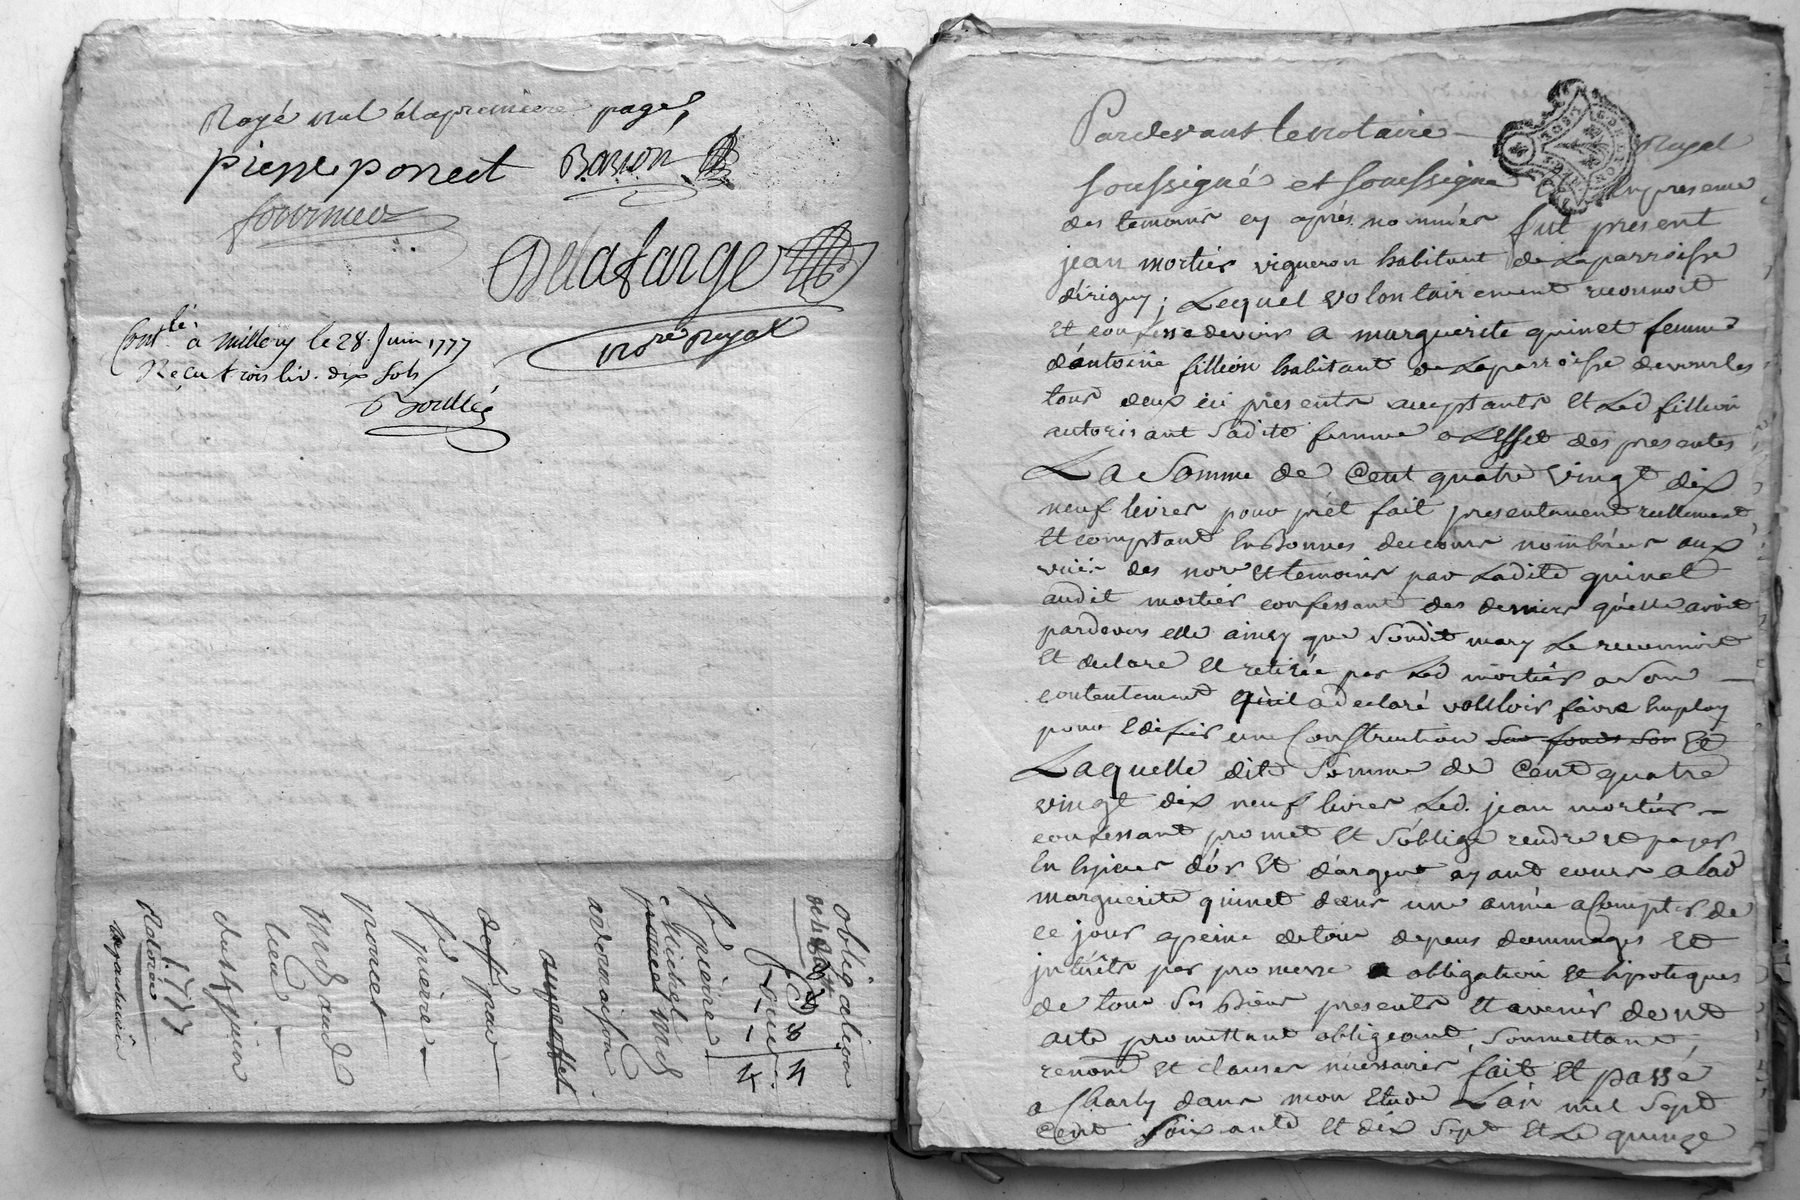 Rayé nul à la premiere page
pierre poncet Baron
fournier
Delafarge
nore Royal
Contlé. à millery le 28. Juin 1777
Reçu trois liv. dix sols
obligation
pierre
Michel
deff jean
pierre
poncet
Md
lieu
du 15 juin
1777
Pardevant le notaire Royal
soussigné et soussigne en presence
des temoins cy aprés nommés fut present
jean mortier vigneron habitant de La parroisse
d'irigny; Lequel volontairement reconnoit
Et confesse devoir a marguerite quinet femme
d'antoine fillion habitant de La parroisse de vourles
tous deux ici presents acceptants Et Led fillion
autorisant Sadite femme a L'effet des presentes
La Somme de Cent quatre vingt dix
neuf livres pour prét fait presentement reellement
Et comptant En Bonnes de cours nombrées aux
vües des nore Et temoins par Ladite quinet
audit mortier confessant des deniers qu'elle avoit
pardevers elle ainsy que Sondit mary Le reconnoit
Et declare Et retirée par Led mortier a Son
contentement qu'il a declaré vouloir faire Employ
pour Edifier une Construction sur fonds son Et
Laquelle dite Somme de Cent quatre
vingt dix neuf livres Led. jean mortier
confessant promet Et S'oblige rendre et payer
En Especes d'or Et d'argent ayant cours a lad
marguerite quinet dans une année a Compter de
ce jour a peine de tous depens dommages Et
intérêts par promesse obligation Et hipoteques
de tous Ses Biens presents Et avenir dont
acte promettant obligeant, Soumettant,
renont Et clauses necessaires, fait Et passé
a Charly dans mon Etude L'an mil Sept
Cent Soixante Et dix Sept Et Le quinze